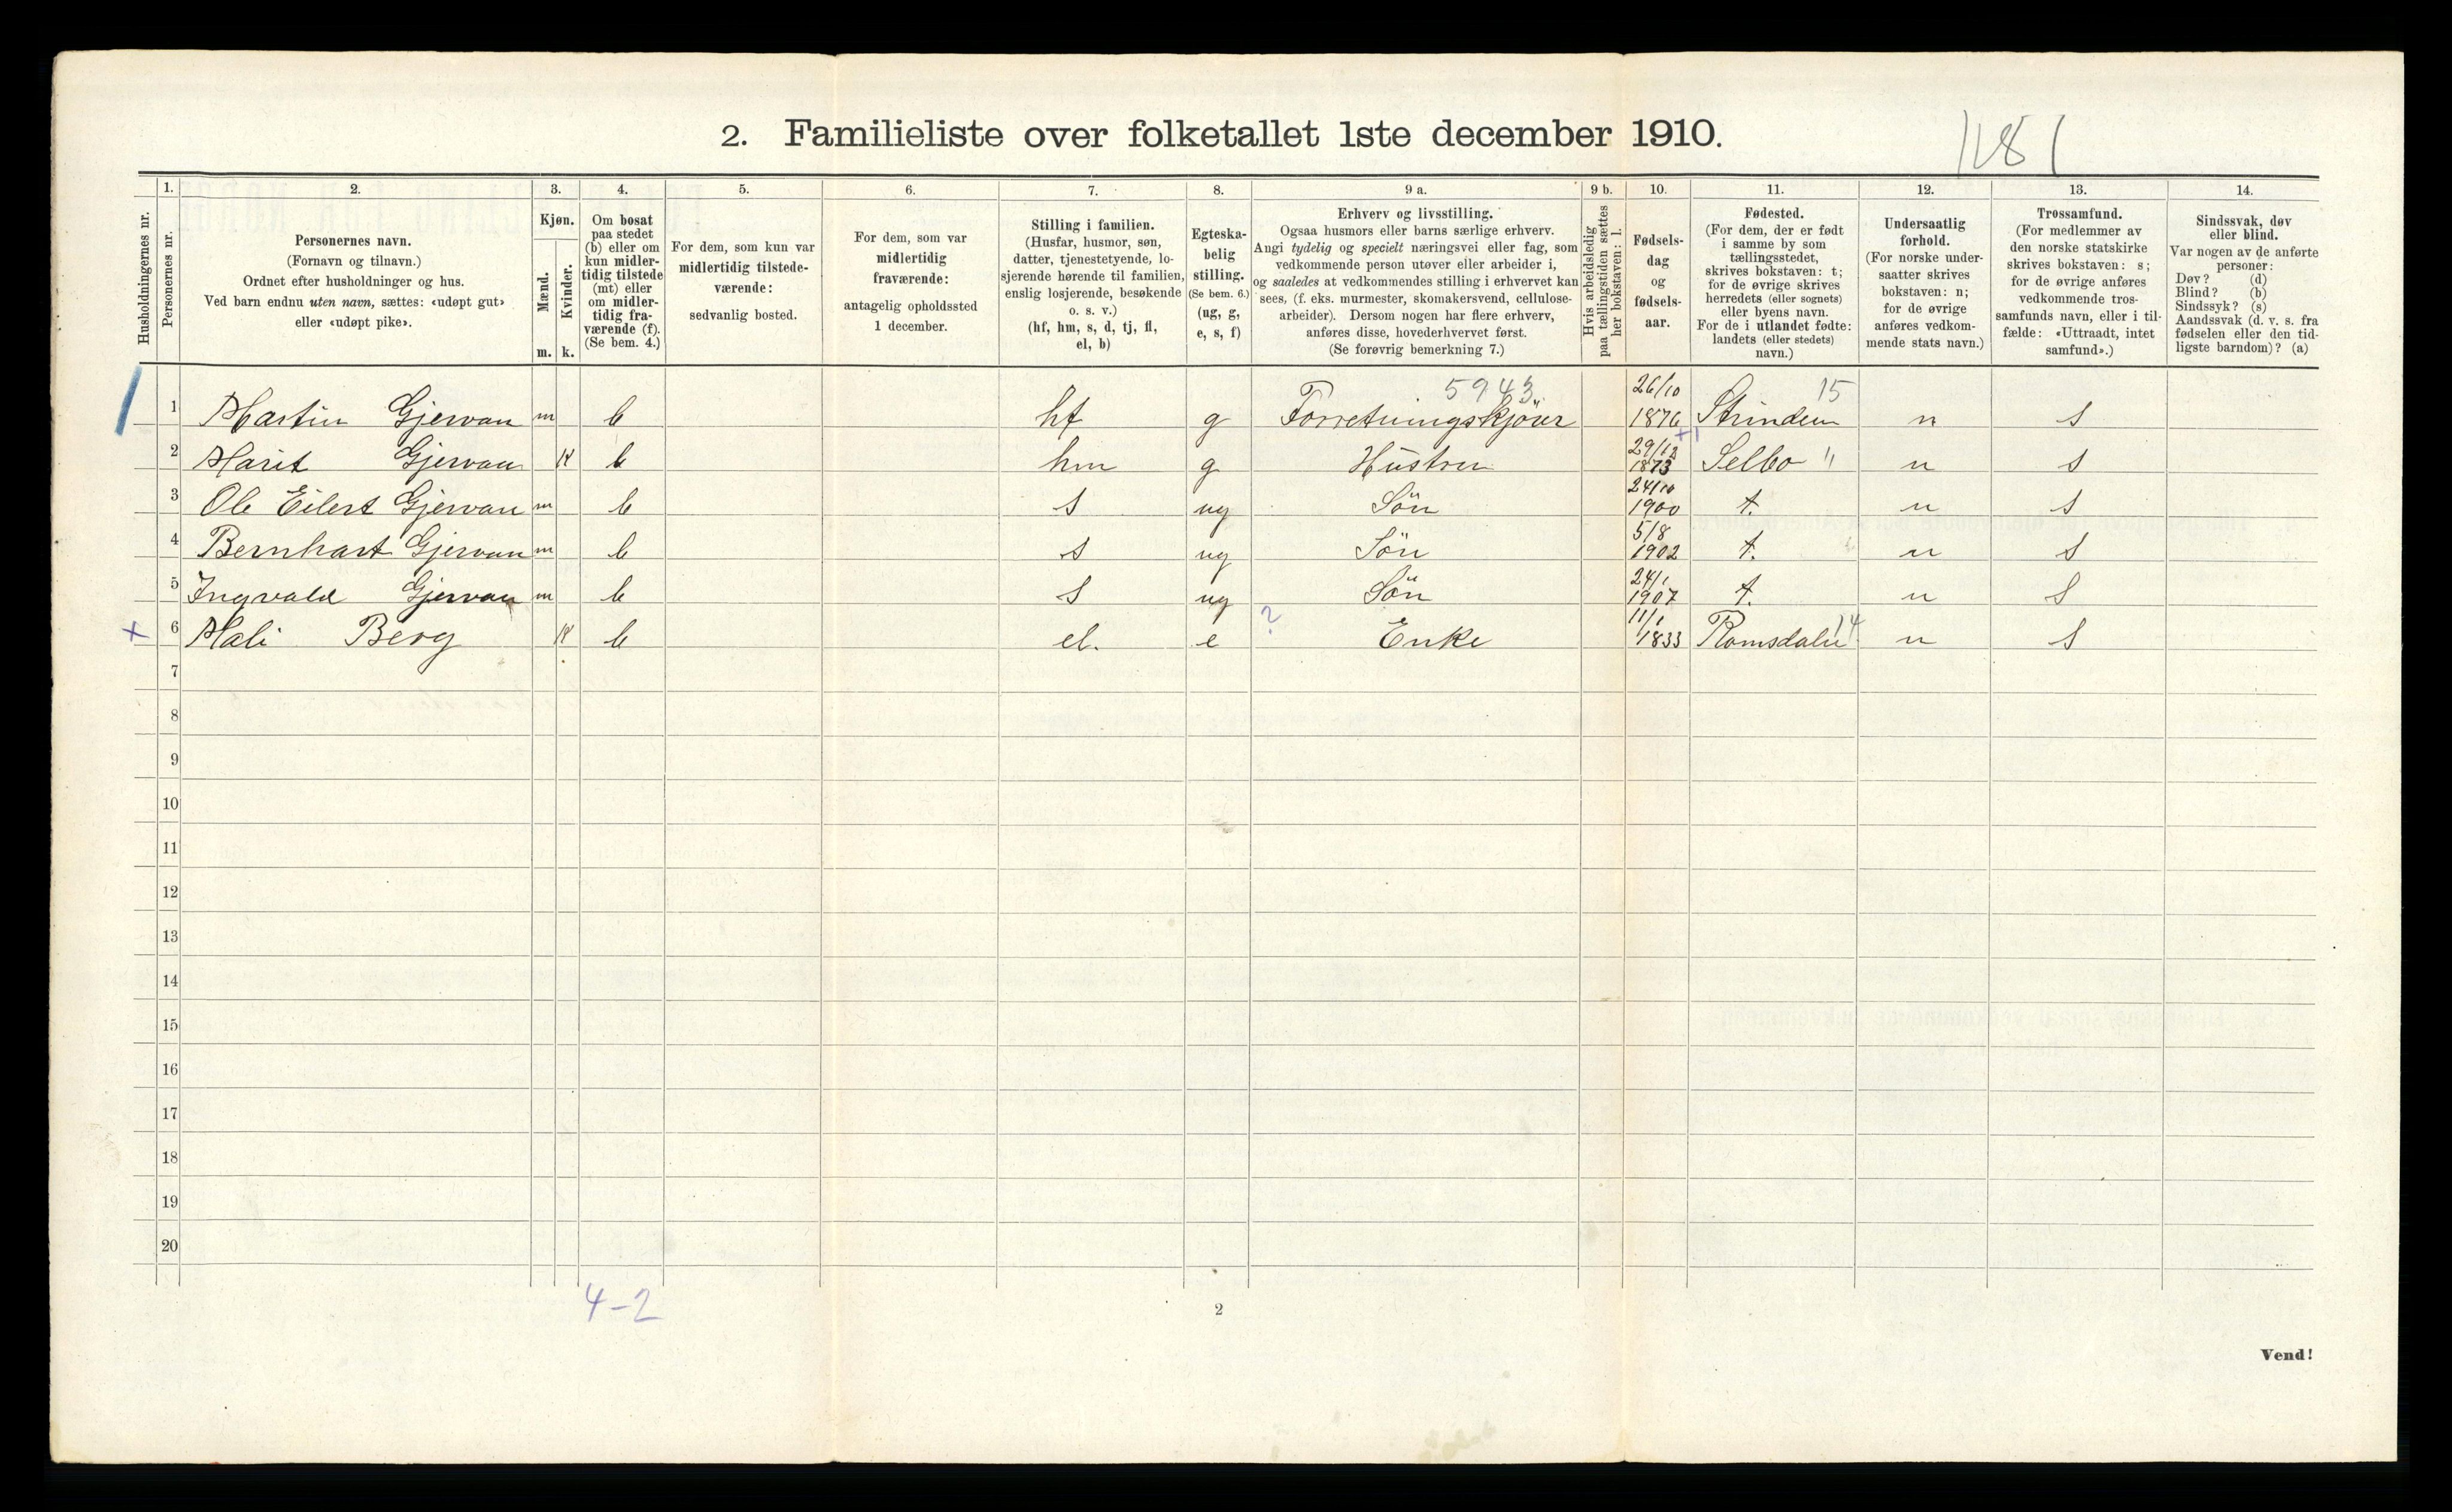 2. Familieliste over folketallet 1ste december 1910.
Husholdningernes nr.
1.
Personernes nr.
2.
Personernes navn.
(Fornavn og tilnavn.)
Ordnet efter husholdninger og hus.
Ved barn endnu uten navn, sættes: «udøpt gut»
eller «udøpt pike».
3.
Kjøn.
Mænd.
Kvinder.
m. k.
4.
Om bosat
paa stedet
(b) eller om
kun midler-
tidig tilstede
(mt) eller
om midler-
tidig fra-
værende (f).
(Se bem. 4.)
5.
For dem, som kun var
midlertidig tilstede-
værende:
sedvanlig bosted.
6.
For dem, som var
midlertidig
fraværende:
antagelig opholdssted
1 december.
7.
Stilling i familien.
(Husfar, husmor, søn,
datter, tjenestetyende, lo-
sjerende hørende til familien,
enslig losjerende, besøkende
o. s. v.)
(hf, hm, s, d, tj, fl,
el, b)
8.
Egteska-
belig
stilling.
(Se bem. 6.)
(ug, g,
e, s, f)
9 a.
Erhverv og livsstilling.
Ogsaa husmors eller barns særlige erhverv.
Angi tydelig og specielt næringsvei eller fag, som
vedkommende person utøver eller arbeider i,
og saaledes at vedkommendes stilling i erhvervet kan
sees, (f. eks. murmester, skomakersvend, cellulose-
arbeider). Dersom nogen har flere erhverv,
anføres disse, hovederhvervet først.
(Se forøvrig bemerkning 7.)
9 b.
Hvis arbeidsledig
paa tællingstiden sættes
her bokstaven: l.
10.
Fødsels-
dag
og
fødsels-
aar.
11.
Fødested.
(For dem, der er født
i samme by som
tællingsstedet,
skrives bokstaven: t;
for de øvrige skrives
herredets (eller sognets)
eller byens navn.
For de i utlandet fødte:
landets (eller stedets)
navn.)
12.
Undersaatlig
forhold.
(For norske under-
saatter skrives
bokstaven: n;
for de øvrige
anføres vedkom-
mende stats navn.)
13.
Trossamfund.
(For medlemmer av
den norske statskirke
skrives bokstaven: s;
for de øvrige anføres
vedkommende tros-
samfunds navn, eller i til-
fælde: «Uttraadt, intet
samfund».)
14.
Sindssvak, døv
eller blind.
Var nogen av de anførte
personer:
Døv? (d)
Blind? (b)
Sindssyk? (s)
Aandssvak (d. v. s. fra
fødselen eller den tid-
ligste barndom)? (a)
5943 26/10 15
1 Martin Gjervan m b hf g Forretningskjöver 1876 Strinden n s
2 Marit Gjervan K b hm g Hustru 29/12 1873 Selbo " n s
3 Ole Eilert Gjervan m b s ug Sön 24/10 1900 t. n s
4 Bernhart Gjervan m b s ug Sön 5/8 1902 t. n s
5 Ingvald Gjervan m b s ug Sön 24/1 1907 t. n s
+ 6 Mali Berg K b el. e ? Enke 11/1 1833 Romsdalen 14 n s
7
8
9
10
11
12
13
14
15
16
17
18
19
20
4-2
2
Vend!